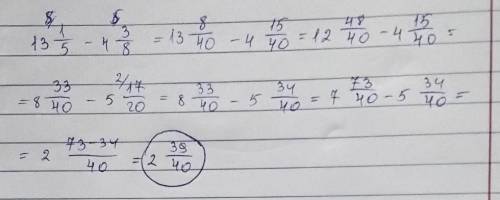 13 ⁸⁾1/5 − 4 ⁵⁾3/8 = 13 8/40 − 4 15/40 = 12 48/40 − 4 15/40 =
= 8 33/40 − 5 ²⁾17/20 = 8 33/40 − 5 34/40 = 7 73/40 − 5 34/40 =
= 2 73−34/40 = 2 39/40